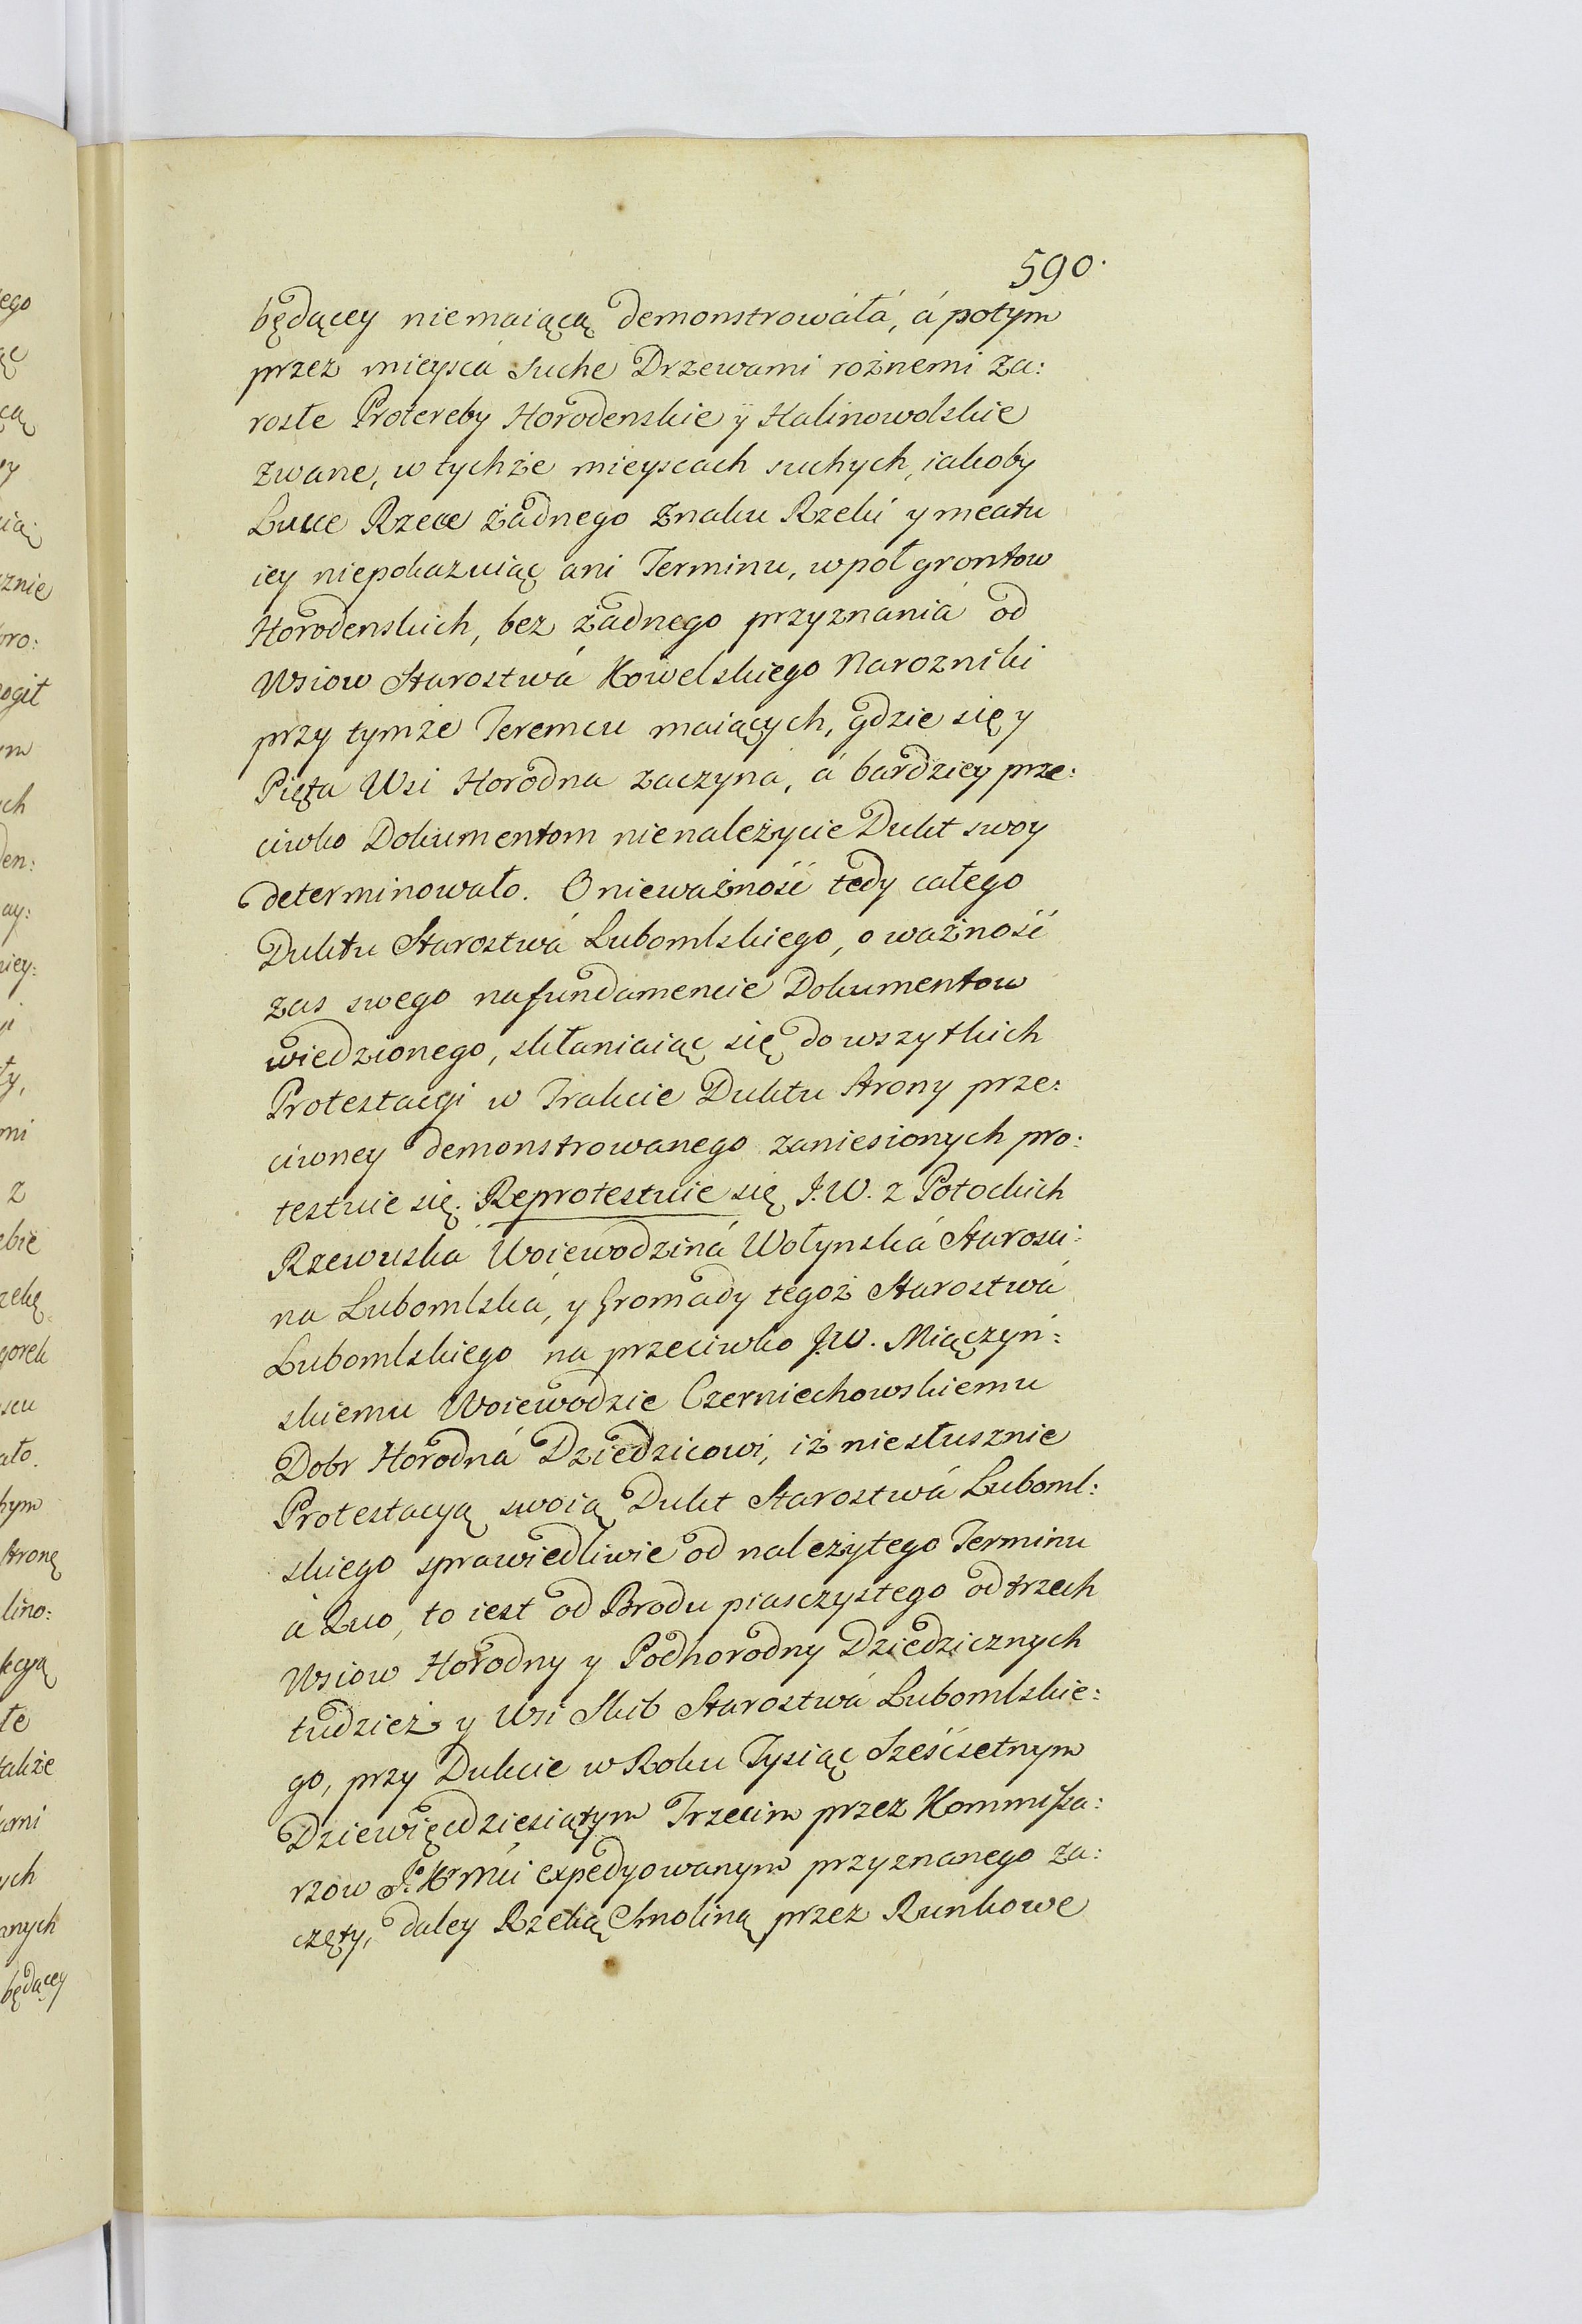 590.
będącey niemaiącą demonstrowáłá, á potym
przez mieyscá suche Drzewami rożnemi za:
rosłe Protereby Horodenskie ÿ Kalinowolskie
zwane, w tychże mieyscach suchych, iakoby
Lucce Rzece żadnego znaku Rzeki y meatu
iey niepokazuiąc ani Terminu, wpoł grontow
Horodenskich, bez żadnego przyznaniá od
Wsiow Starostwá Kowelskiego Narozniki
przy tymże Teremcu maiących, gdzie się y
Pięta Wsi Horodna zaczyna, á bardziey prze:
ciwko Dokumentom nienależycie Dukt swoy
determinowało. O nieważność tedy całego
Duktu Starostwá Lubomlskiego, o ważność
zas swego nafundamencie Dokumentow
wiedzionego, skłaniaiąc się do wszytkich
Protestacyi w Trakcie Duktu Strony prze:
ciwney demonstrowanego zaniesionych pro:
testuie się. Reprotestuie się J.W. z Potockich
Rzewuska Woiewodziná Wołynská Starosci:
na Lubomlská, y Gromady tegoż Starostwá
Lubomlskiego na przeciwko J.W. Miączyń:
skiemu Woiewodzie Czerniechowskiemu
Dobr Horodná Dziedzicowi, iż niesłusznie
Protestacyą swoią Dukt Starostwá Luboml:
skiego sprawiedliwie od należytego Terminu
á Quo, to iest od Brodu piasczystego od trzech
Wsiow Horodny y Podhorodny Dziedzicznych
tudzież y Wsi Skib Starostwá Lubomlskie:
go, przy Dukcie w Roku Tysiąc Sześćsetnym
Dziewięcdziesiątym Trzecim przez Kommissa:
rzow J. Kr Mci expedyowanym przyznanego za:
częty, daley Rzeką Chnoliną przez Runkowe